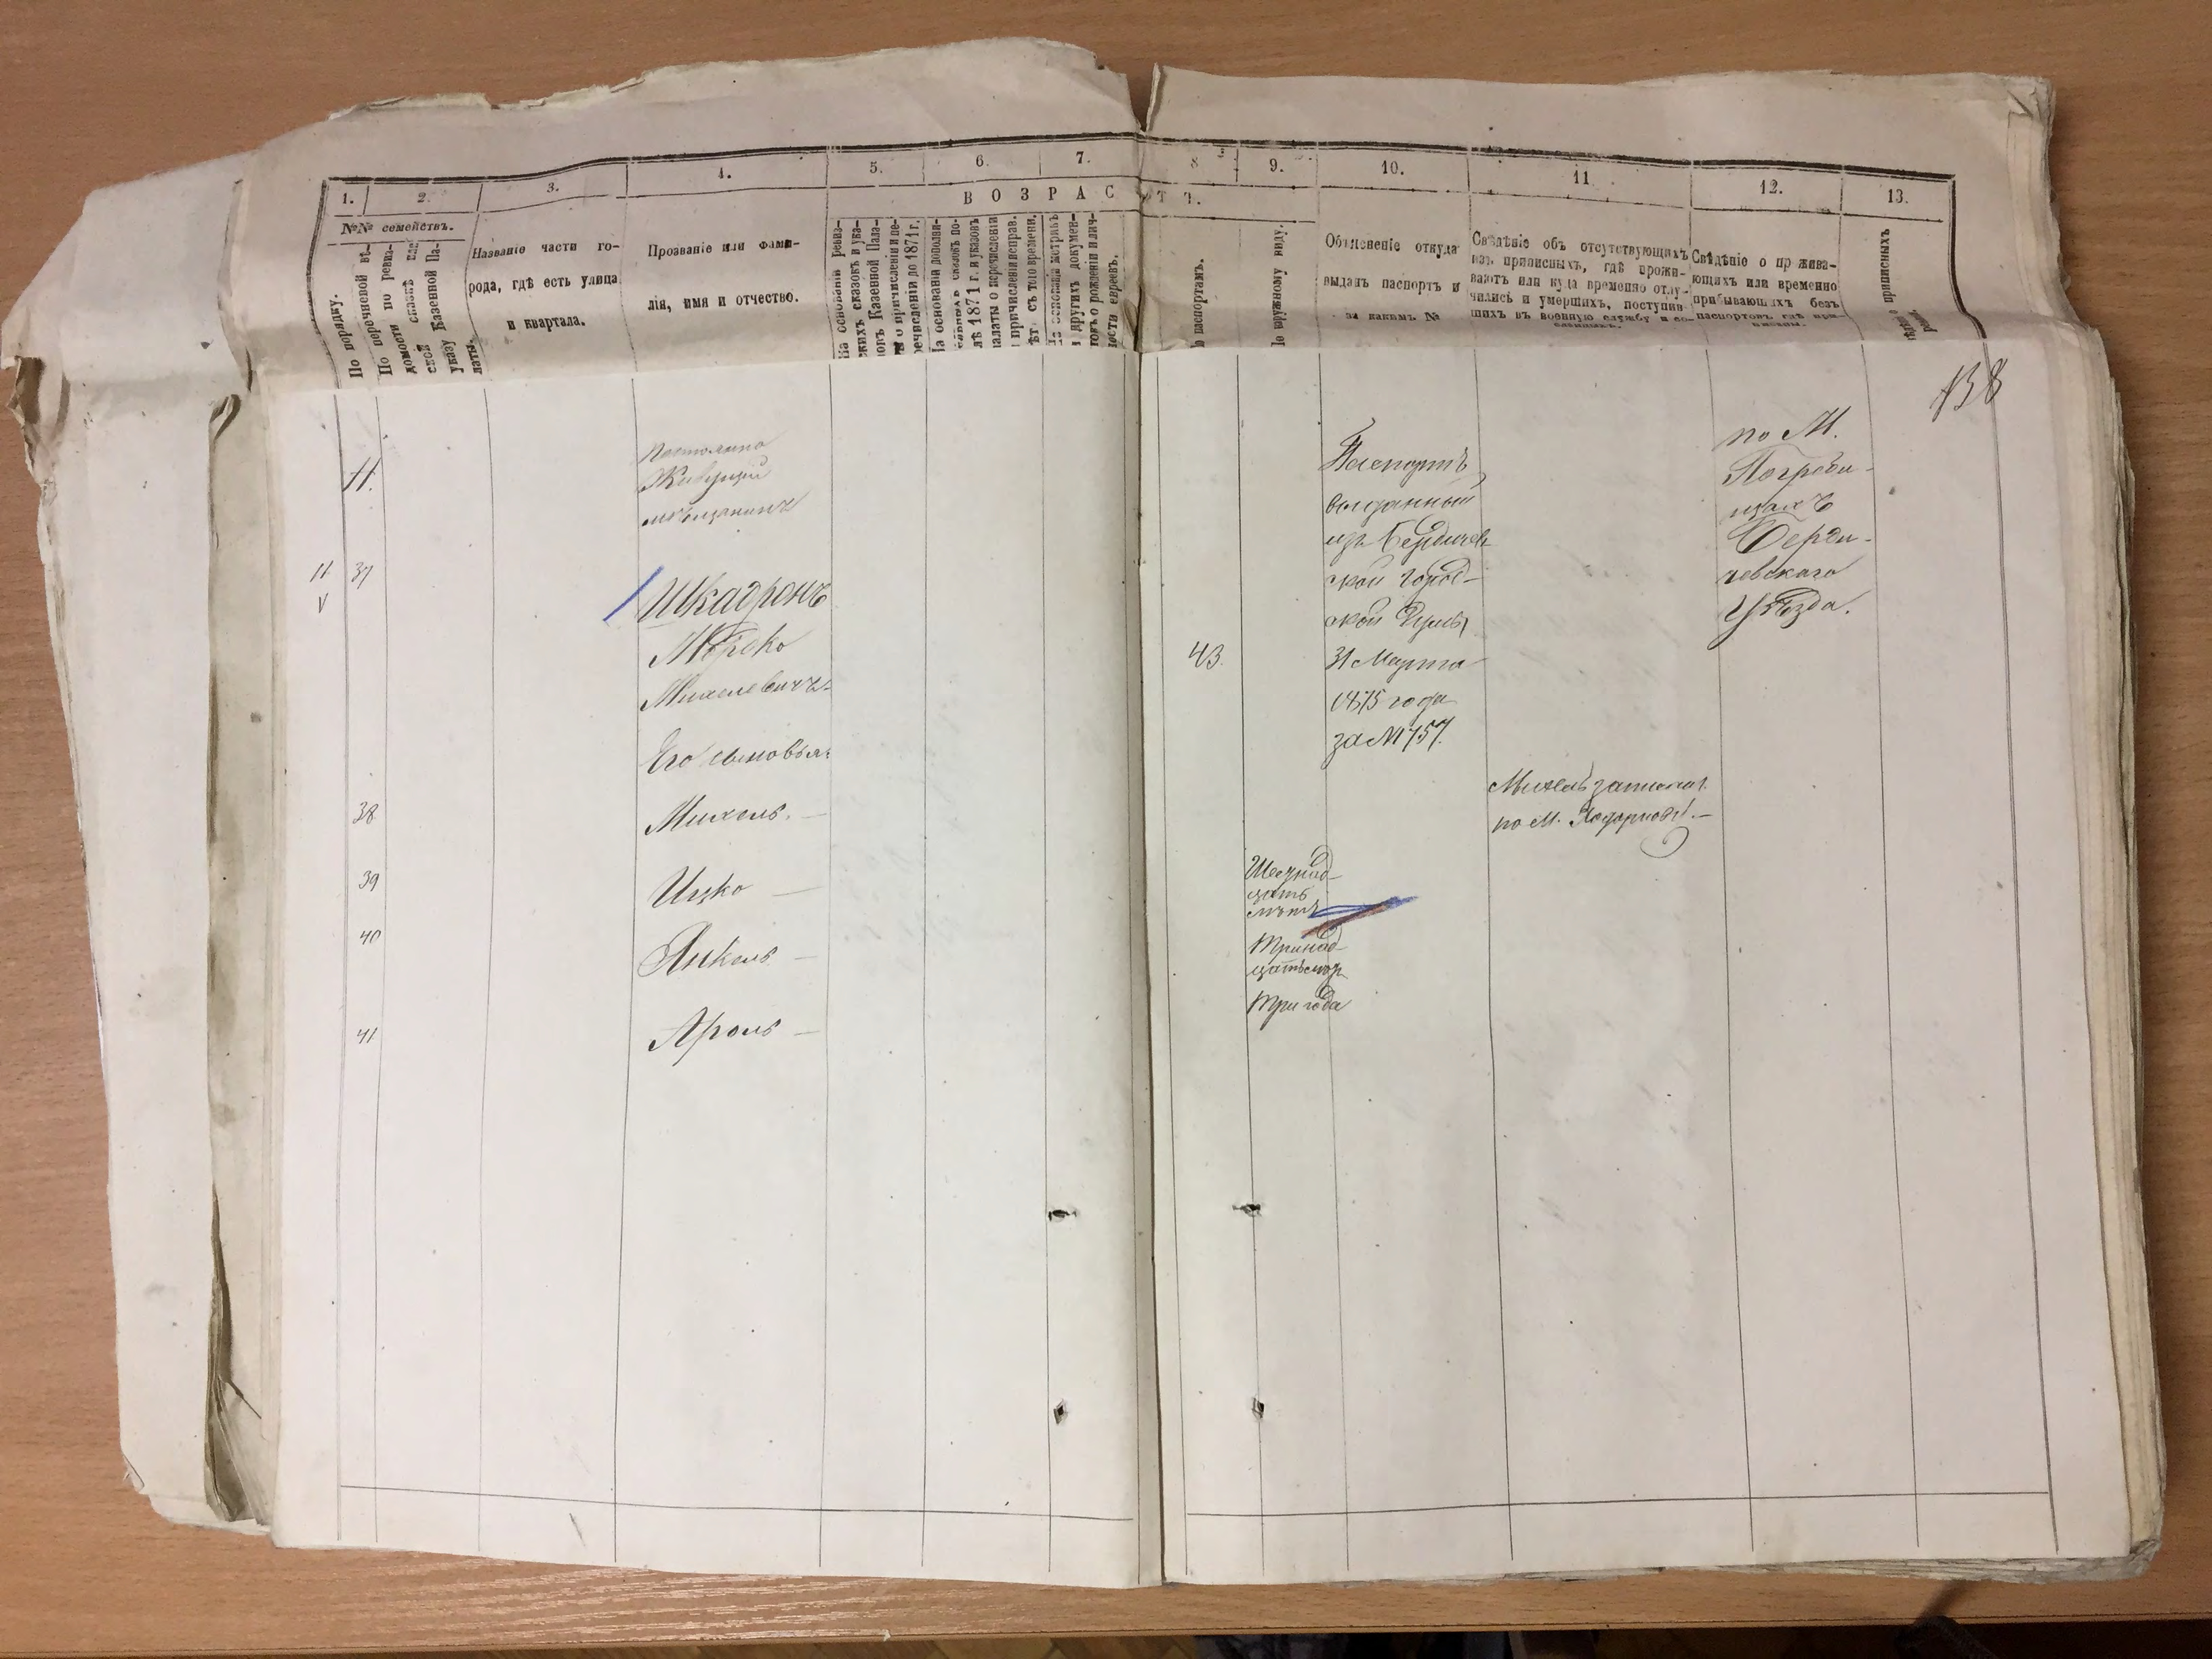 1.
2.
3.
4.
5.
6.
7.
8
9.
10.
11
12.
13.
ВОЗРАСТЪ.
№№ семействъ.
По порядку.
По перечневой вѣ-
домости по ревиз-
ской
указу Казенной Па-
латы.
Названіе части го-
рода, гдѣ есть улица
и квартала.
Прозваніе или фами-
лія, имя и отчество.
На основаніи ревиз-
скихъ сказокъ и ука-
зовъ Казенной Пала-
ты о причисленіи и пе-
речисленіи до 1871 г.
На основаніи дополни-
сказокъ по-
слѣ 1871 г. и указовъ
палаты о перечисленіи
и причисленіи исправ.
лѣтъ съ того времени.
На основаніи метрикъ
и другихъ докумен-
товъ о рожденіи и лич-
ности евреевъ.
По паспортамъ.
По наружному виду.
Объясненіе откуда
выданъ паспортъ и
за какимъ №
Свѣдѣніе объ отсутствующихъ
изъ приписныхъ, гдѣ прожи-
ваютъ или куда временно отлу-
чились и умершихъ, поступив-
шихъ въ военную службу и со-
сланныхъ.
Свѣдѣніе о прожива-
ющихъ или временно
прибывающихъ безъ
паспортовъ гдѣ при-
писаны.
приписныхъ
138
11.
Постоянно
Живущій
мѣщанинъ
11 37
V
Шкадронъ
Мошко
Михелевичъ.
43.
Паспортъ
выданный
изъ Бердичев-
ской Город-
ской Думы
31 Марта
1875 года
за № 757.
по М.
Погреби-
щахъ
Берди-
чевскаго
Уѣзда.
Его сыновья:
38
Михель. —
Михель записан.
по М. Ходоркову. —
39
Ицко —
Шестнад-
цать
лѣтъ
40
Янкель —
Тринад-
цать
41
Аронъ —
Три года